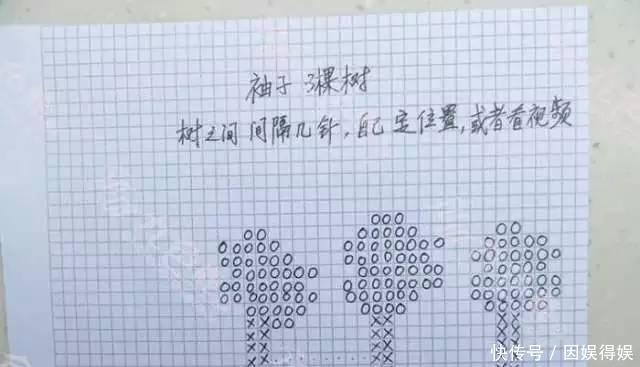 袖子 3棵树
树之间 间隔几针，自己 定位置，或者看视频
快传号 / 因娱得娱